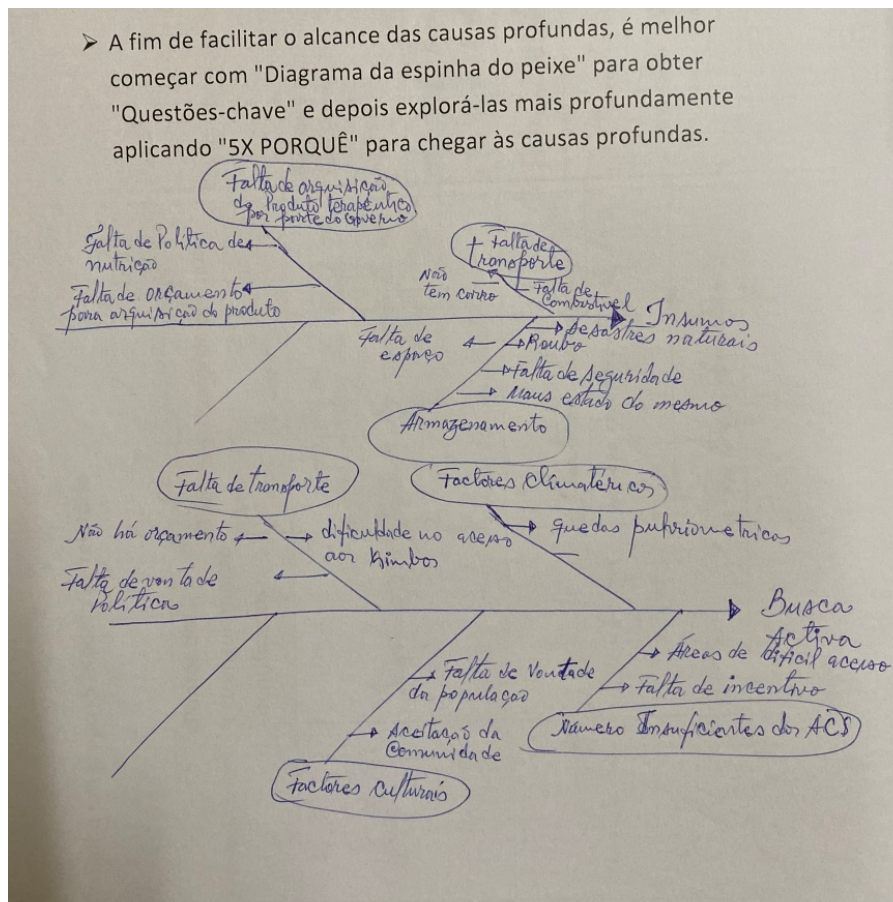 ➤ A fim de facilitar o alcance das causas profundas, é melhor
começar com "Diagrama da espinha do peixe" para obter
"Questões-chave" e depois explorá-las mais profundamente
aplicando "5X PORQUÊ" para chegar às causas profundas.
Falta de arquisição
do Produto terapêutico
por parte do Governo
Falta de Política de
nutrição
Falta de orçamento
para arquisição do produto
Falta de
transporte
Não
tem carro
Falta de
Combustível
Insumos
Falta de
espaço
desastres naturais
Roubo
Falta de seguridade
Maus estado do mesmo
Armazenamento
Falta de transporte
Factores Climatéricos
Não há orçamento
dificuldade no acesso
aos Kimbos
quedas
Falta de vontade
Política
Busca
Activa
Áreas de dificil acesso
Falta de Vontade
da população
Falta de incentivo
Aceitação da
Comunidade
Número Insuficientes dos ACS
Factores culturais